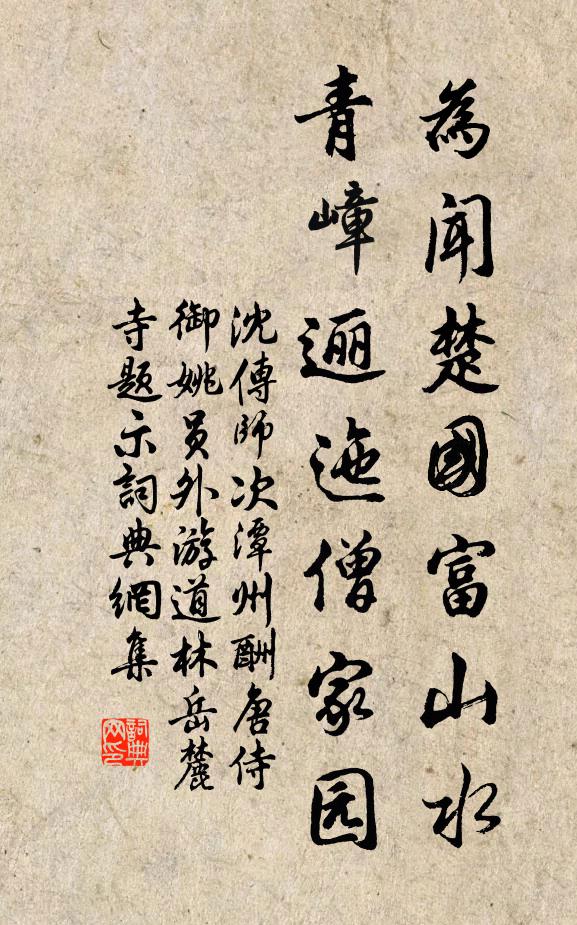 為聞楚國富山水
青嶂逦迤僧家园
沈傳師次潭州酬唐侍
御姚员外游道林岳麓
寺題示詞典網集
詞典
网印